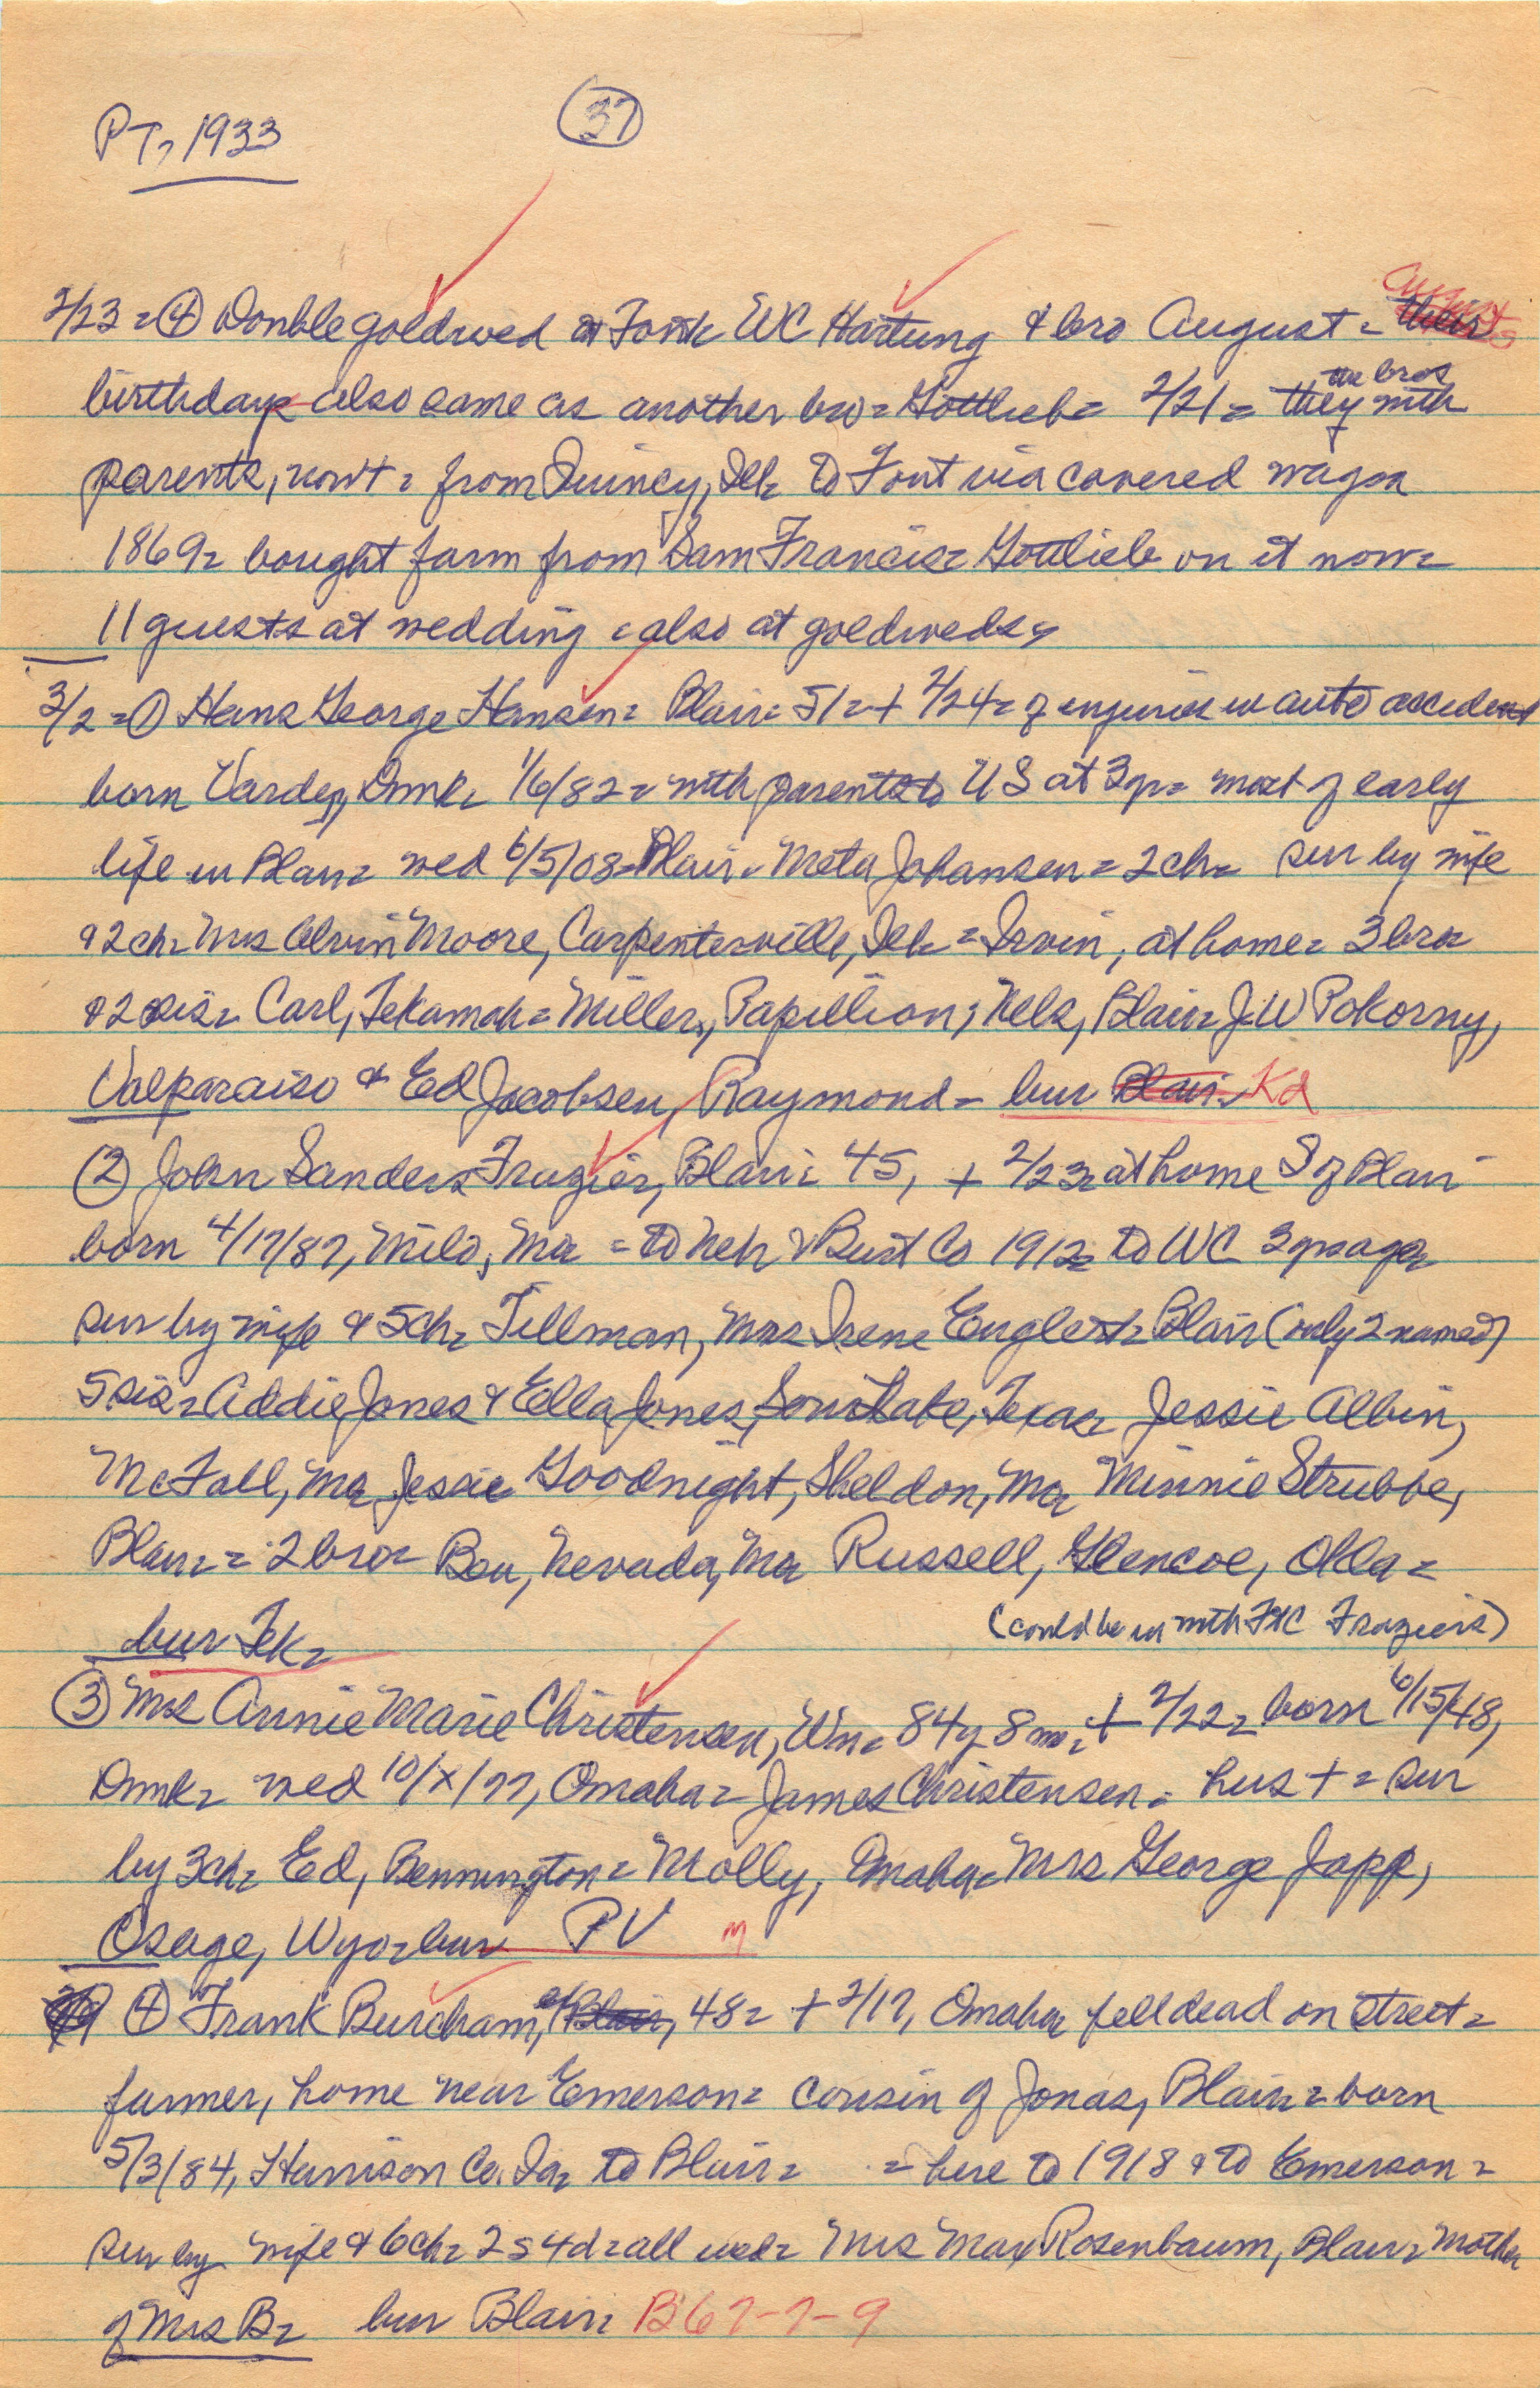 PT, 1933
37
2/23 = ④ Double goldwed at Font WC Hartung & bro August =
birthdays also same as another bro = Gottlieb = 2/21 = they the bros with
parents, went = from Quincy, Ill= to Font via covered wagon
1869= bought farm from Sam Francis= Gottlieb on it now=
11 guests at wedding = also at goldweds,
3/2 = ① Hans George Hansen= Blair= 51 = + 2/24 = of injuries in auto accident
born Varde, Dmk= 1/6/82 = with parents to US at 3y= most of early
life in Blair= wed 6/5/08=Blair= Meta Johansen = 2ch= sur by wife
& 2ch= Mrs Alvin Moore, Carpentersville, Ill= = Irvin, at home= 3bro=
& 2sis= Carl, Tekamah= Miller, Papillion; Nels, Blair= J.W Pokorny,
Valparaiso & Ed Jacobsen, Raymond = bur Blair= Kd
② John Sanders Frazier, Blair= 45, + 2/23= at home S of Blair
born 4/17/87, Milo, Mo= = to Neb & Burt Co 1912= to WC 3ysago=
sur by wife & 5ch= Tillman, Mrs Irene Englert= Blair (only 2 named)
5sis= Addie Jones & Ella Jones, Sour Lake, Texas= Jessie Albin,
McFall, Mo= Jessie Goodnight, Sheldon, Mo= Minnie Strubbe,
Blair= = 2bro= Ben, Nevada, Mo= Russell, Glencoe, Okla=
bur Tek= (could be in with FtC Fraziers)
③ Mrs Annie Marie Christensen, Wn= 84y 8m= + 2/22= born 6/15/48,
Dmk= wed 10/x/77, Omaha= James Christensen= hus + = sur
by 3ch= Ed, Bennington= Molly, Omaha= Mrs George Japp,
Osage, Wyo=bur PV m
④ Frank Burcham, of Blair, 48= + 2/17, Omaha= fell dead on street=
farmer, home near Emerson= cousin of Jonas, Blair= born
5/3/84, Harrison Co. Ia= to Blair= = here to 1918 & to Emerson=
sur by wife & 6ch= 2s 4d=all wed= Mrs Max Rosenbaum, Blair= Mother
of Mrs B= bur Blair= B67-7-9